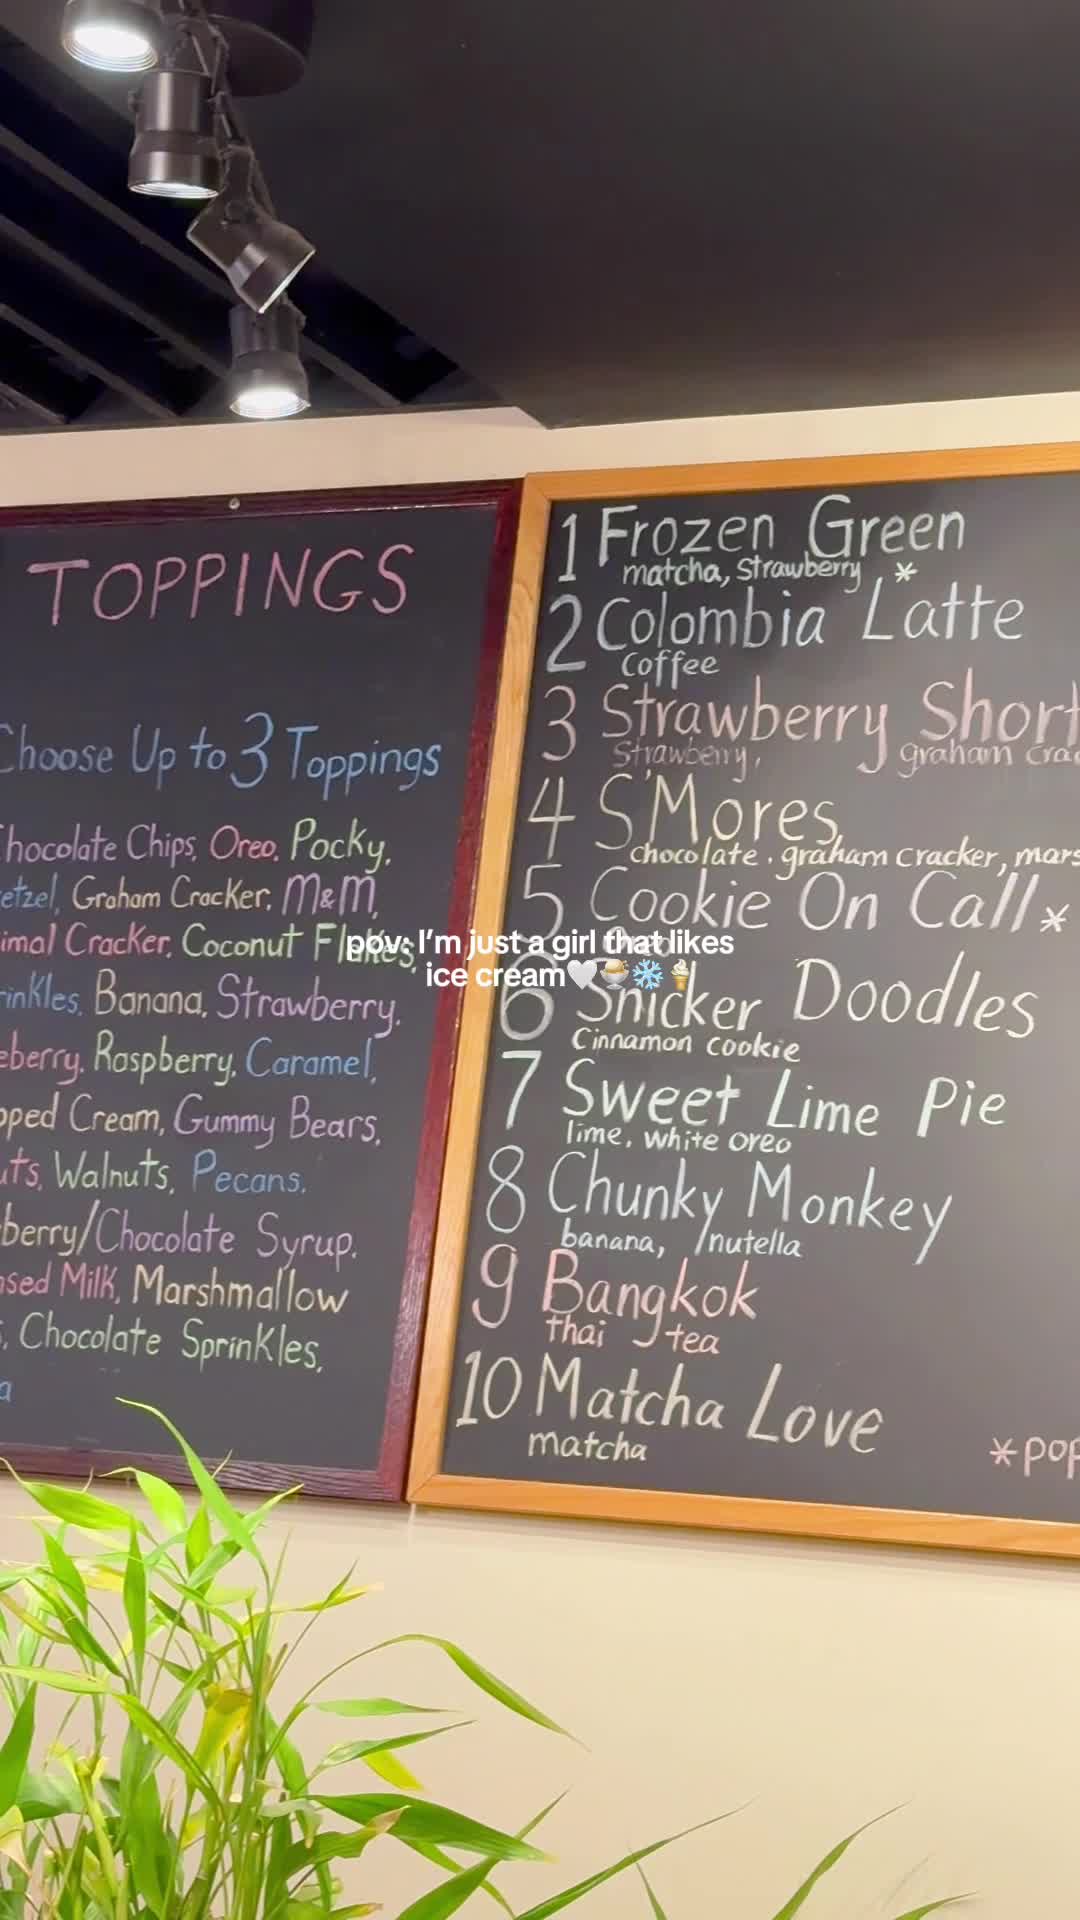 TOPPINGS
Choose Up to 3 Toppings
Chocolate Chips, Oreo, Pocky,
etzel, Graham Cracker, M&M,
imal Cracker, Coconut Flakes,
rinkles, Banana, Strawberry,
eberry, Raspberry, Caramel,
pped Cream, Gummy Bears,
uts, Walnuts, Pecans,
berry/Chocolate Syrup,
nsed Milk, Marshmallow
s, Chocolate Sprinkles,
a
1 Frozen Green
matcha, strawberry *
2 Colombia Latte
coffee
3 Strawberry Short
Strawberry, graham crac
4 S'Mores
chocolate, graham cracker, mars
5 Cookie On Call *
6 Snicker Doodles
Cinnamon cookie
7 Sweet Lime Pie
lime, white oreo
8 Chunky Monkey
banana, nutella
9 Bangkok
thai tea
10 Matcha Love
matcha
*pop
pov: I'm just a girl that likes
ice cream🤍🍨❄️🍦